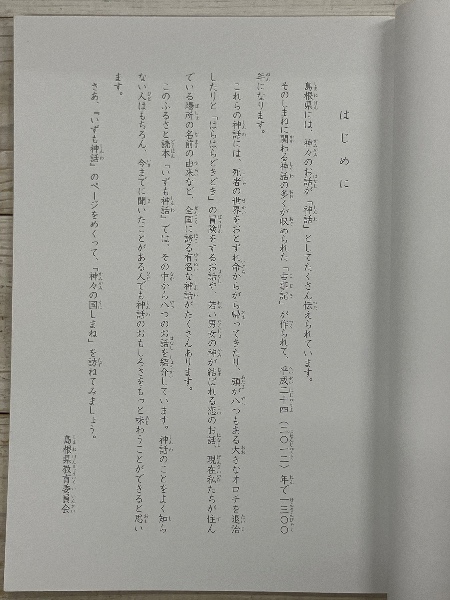 はじめに
島根県には、神々のお話が「神話」としてたくさん伝えられています。
そのしまねに関わる神話の多くが収められた「古事記」が作られて、平成二十四（二〇一二）年で一三〇〇
年になります。
これらの神話には、死者の世界をおとずれ命からがら帰ってきたり、頭が八つもある大きなオロチを退治
したりと「はらはらどきどき」の冒険をするお話や、若い男女の神が結ばれる恋のお話、現在私たちが住ん
でいる場所の名前の由来など、全国に誇る有名な神話がたくさんあります。
このふるさと読本「いずも神話」では、その中から八つのお話を紹介しています。神話のことをよく知ら
ない人はもちろん、今までに聞いたことがある人でも神話のおもしろさをもっと味わうことができると思い
ます。
さあ、「いずも神話」のページをめくって、「神々の国しまね」を訪ねてみましょう。
島根県教育委員会